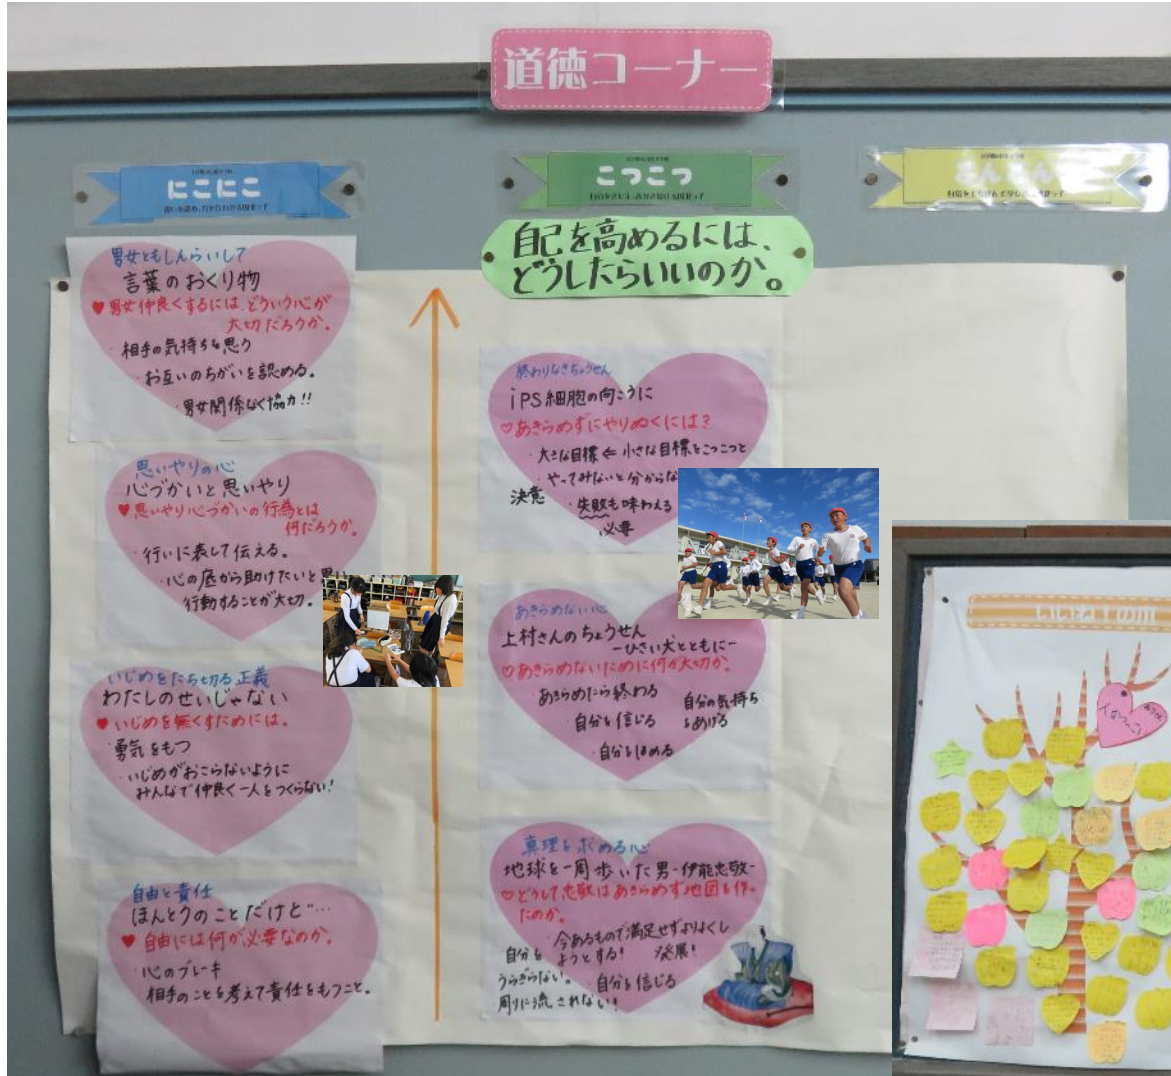 道徳コーナー
にこにこ
男女ともしんらいして
言葉のおくり物
♥男女仲良くするには、どういう心が
大切だろうか。
・相手の気持ちを思う
・お互いのちがいを認める。
・男女関係なく協力!!
思いやりの心
心づかいと思いやり
♥思いやり心づかいの行為とは
何だろうか。
・行いに表して伝える。
・心の底から助けたいと思い
行動することが大切。
いじめをたち切る正義
わたしのせいじゃない
♥いじめを無くすためには。
・勇気をもつ
・いじめがおこらないように
みんなで仲良く一人をつくらない!
自由と責任
ほんとうのことだけど…
♥自由には何が必要なのか。
・心のブレーキ
・相手のことを考えて責任をもつこと。
こつこつ
自己を高めるには、
どうしたらいいのか。
終わりなきちょうせん
iPS細胞の向こうに
♡あきらめずにやりぬくには?
・大きな目標⇐小さな目標をこつこつと
・やってみないと分からな
決意
・失敗も味わえる
必要
あきらめない心
上村さんのちょうせん
ーひさい犬とともにー
♡あきらめないために何が大切か。
・あきらめたら終わる
・自分を信じる
・自分をほめる
自分の気持ち
をあげる
真理を求める心
地球を一周歩いた男-伊能忠敬-
♡どうして忠敬はあきらめず地図を作っ
たのか。
・今あるもので満足せずよりよくし
ようとする! 発展!
自分を
うらぎらない。
・自分を信じる
周りに流されない!